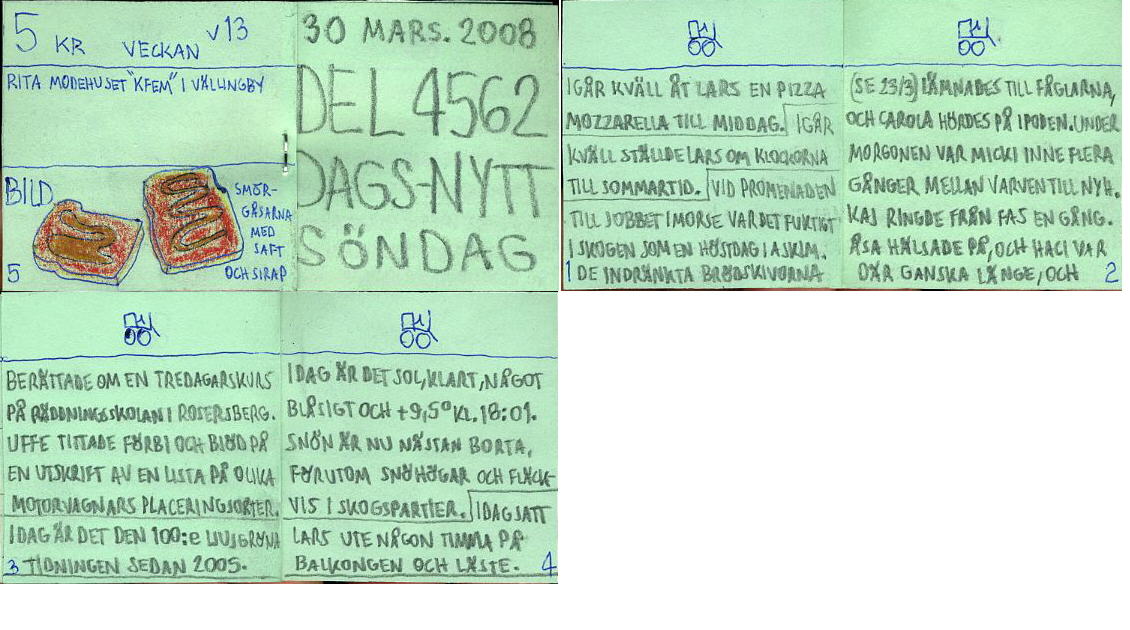 5 KR VECKAN V13
RITA MODEHUSET "KFEM" I VÄLLINGBY
BILD
SMÖR-
GÅSARNA
MED
SAFT
OCH SIRAP
5
30 MARS. 2008
DEL 4562
DAGS-NYTT
SÖNDAG
IGÅR KVÄLL ÅT LARS EN PIZZA
MOZZARELLA TILL MIDDAG. IGÅR
KVÄLL STÄLLDE LARS OM KLOCKORNA
TILL SOMMARTID. VID PROMENADEN
TILL JOBBET I MORSE VAR DET FUKTIGT
I SKOGEN SOM EN HÖSTDAG I ASKIM.
1 DE INDRÄNKTA BRÖDSKIVORNA
(SE 23/3) LÄMNADES TILL FÅGLARNA,
OCH CAROLA HÖRDES PÅ IPODEN. UNDER
MORGONEN VAR MICKI INNE FLERA
GÅNGER MELLAN VARVEN TILL NYH.
KAJ RINGDE FRÅN FAS EN GÅNG.
ÅSA HÄLSADE PÅ, OCH HACI VAR
DÄR GANSKA LÄNGE, OCH 2
BERÄTTADE OM EN TREDAGARSKURS
PÅ RÄDDNINGSSKOLAN I ROSERSBERG.
UFFE TITTADE FÖRBI OCH BJÖD PÅ
EN UTSKRIFT AV EN LISTA PÅ OLIKA
MOTORVAGNARS PLACERINGSORTER.
IDAG ÄR DET DEN 100:e LJUSGRÖNA
3 TIDNINGEN SEDAN 2005.
IDAG ÄR DET SOL, KLART, NÅGOT
BLÅSIGT OCH +9,5° KL. 18:01.
SNÖN ÄR NU NÄSTAN BORTA,
FÖRUTOM SNÖHÖGAR OCH FLÄCK-
VIS I SKOGSPARTIER. IDAG SATT
LARS UTE NÅGON TIMMA PÅ
BALKONGEN OCH LÄSTE. 4